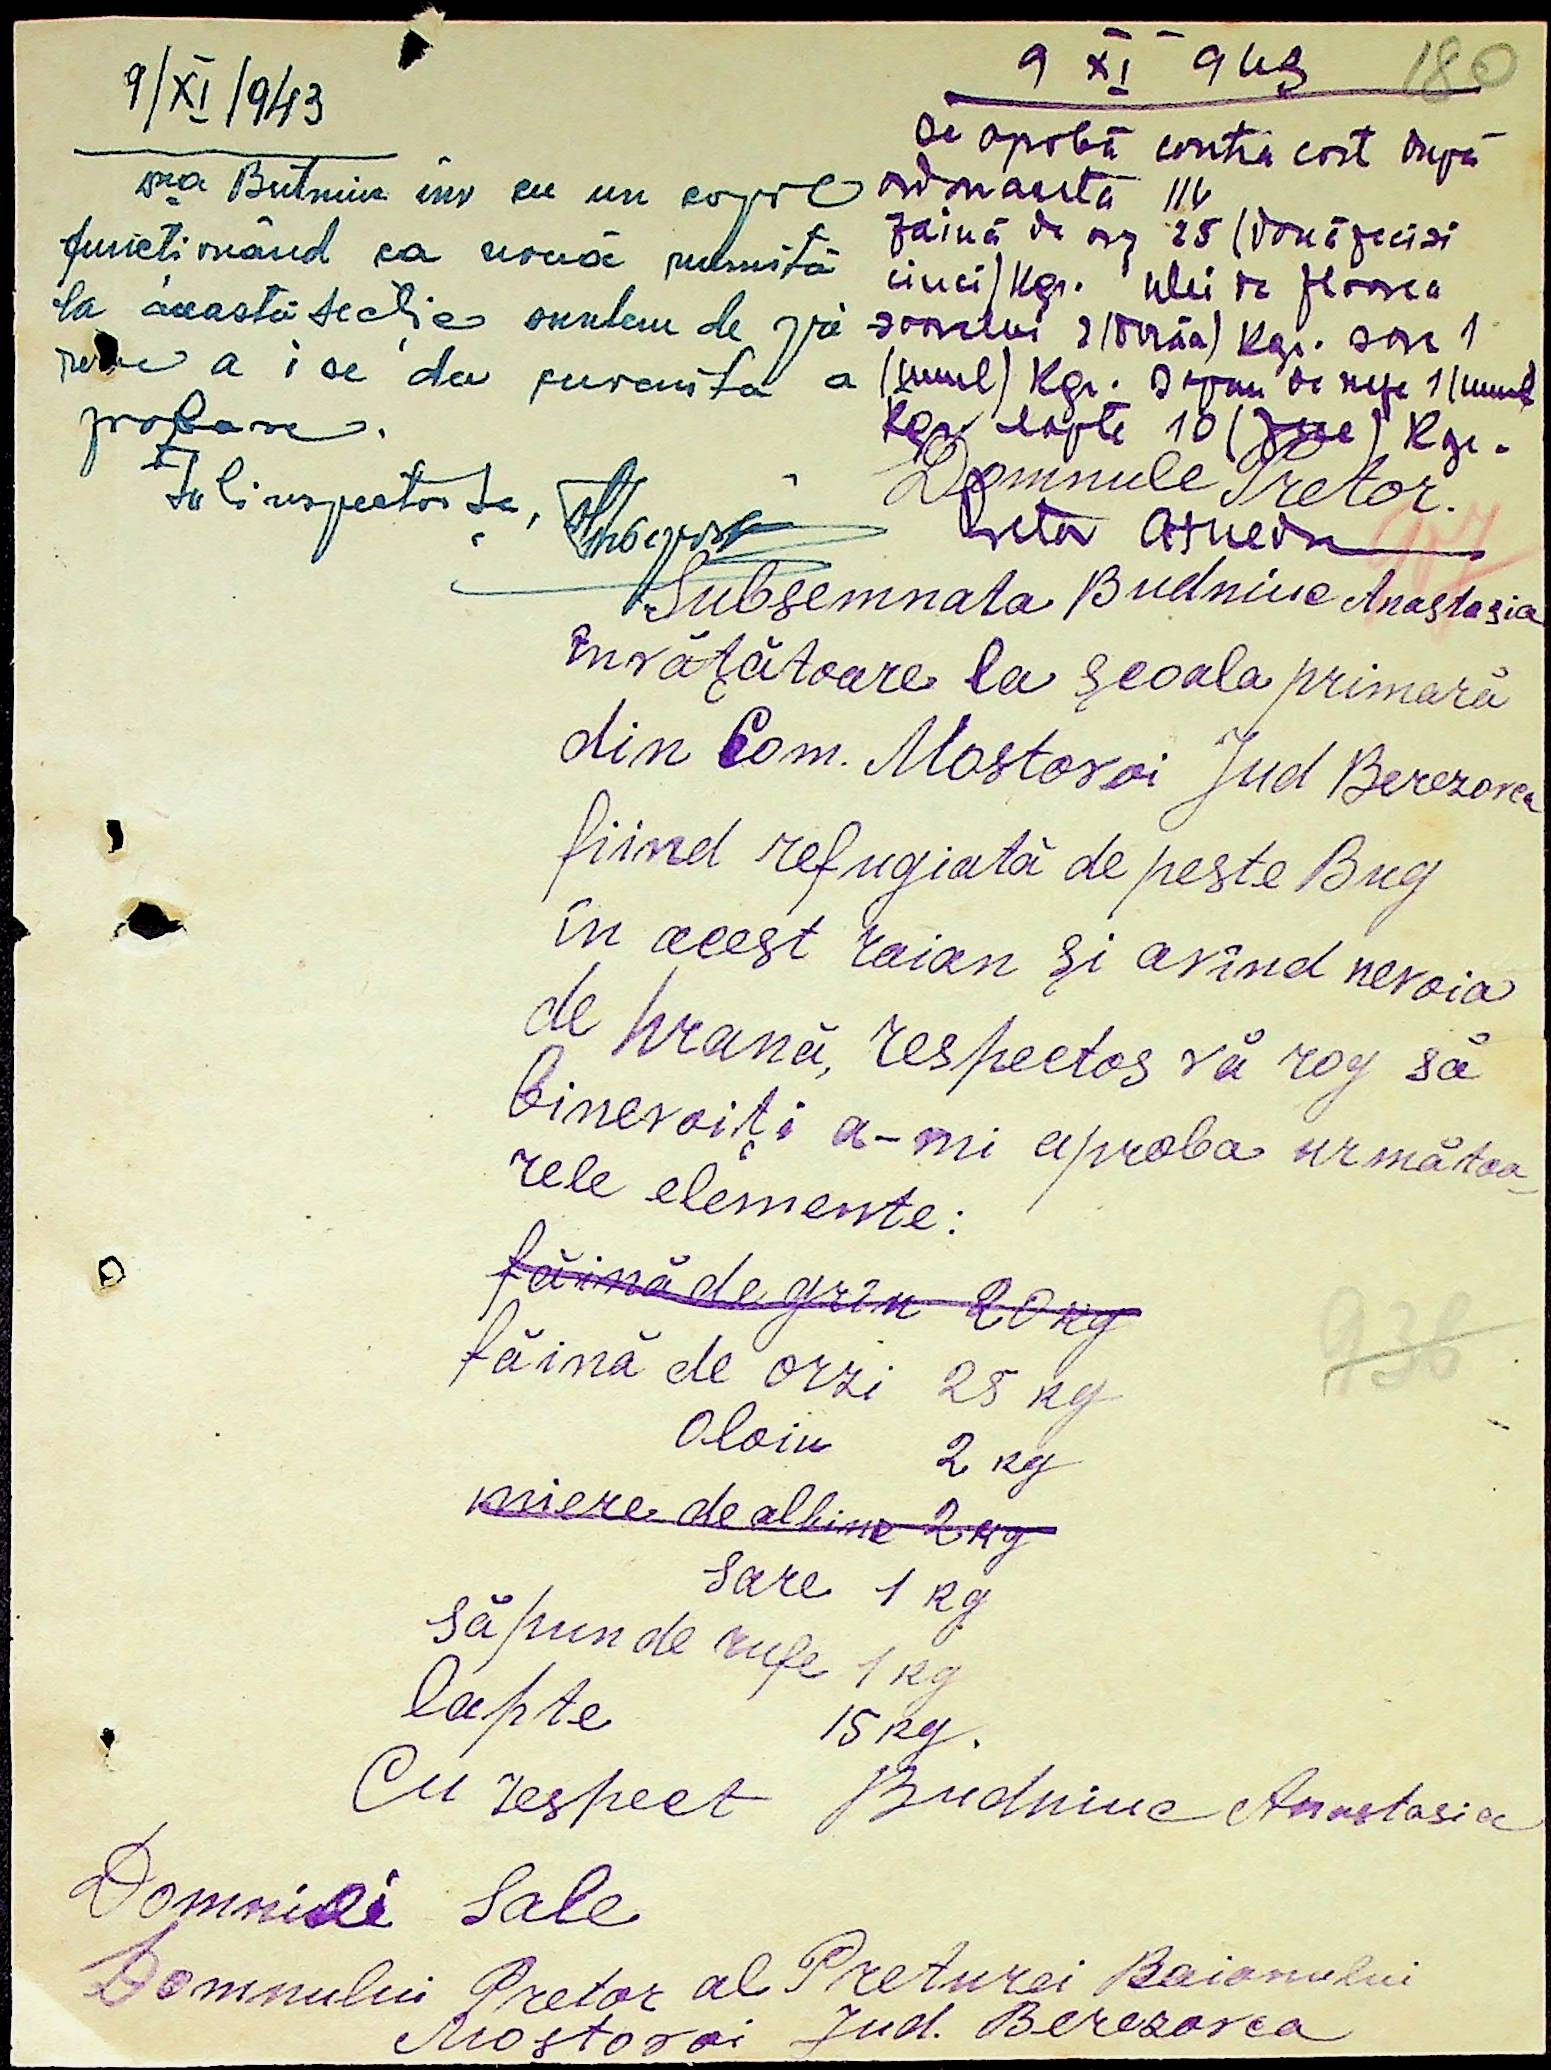 180
9/XI/943
Dna Butniuc înv cu un copil
funcționând ca nouă numită
la această secție suntem de pă
rere a i se da cuvenita a
probare.
Subinspector Șc,
9 XI 943
Se aprobă contra cost după
ordonanță 116
Făină de orz 25 (douăzecisi
cinci) Kgr. ulei de floarea
soarelui 2 (două) Kgr. sare 1
(unul) Kgr. Săpun de rufe 1 (unul
Kgr. lapte 10 (zece) Kgr.
Pretor
Domnule Pretor.
Subsemnata Budniuc Anastasia
învățătoare la școala primară
din Com. Mostovoi Jud Berezovca
fiind refugiată de peste Bug
în acest raion și avînd nevoia
de hrană, respectos vă rog să
binevoiți a-mi aproba următoa-
rele elemente:
făină de grîu 20 kg
făină de orzi 25 kg
Oloiu 2 kg
miere de albine 2 kg
Sare 1 kg
Săpun de rufe 1 kg
lapte 15 kg.
Cu respect Budniuc Anastasia
938
Domniei Sale
Domnului Pretor al Preturei Raionului
Mostovoi Jud. Berezovca